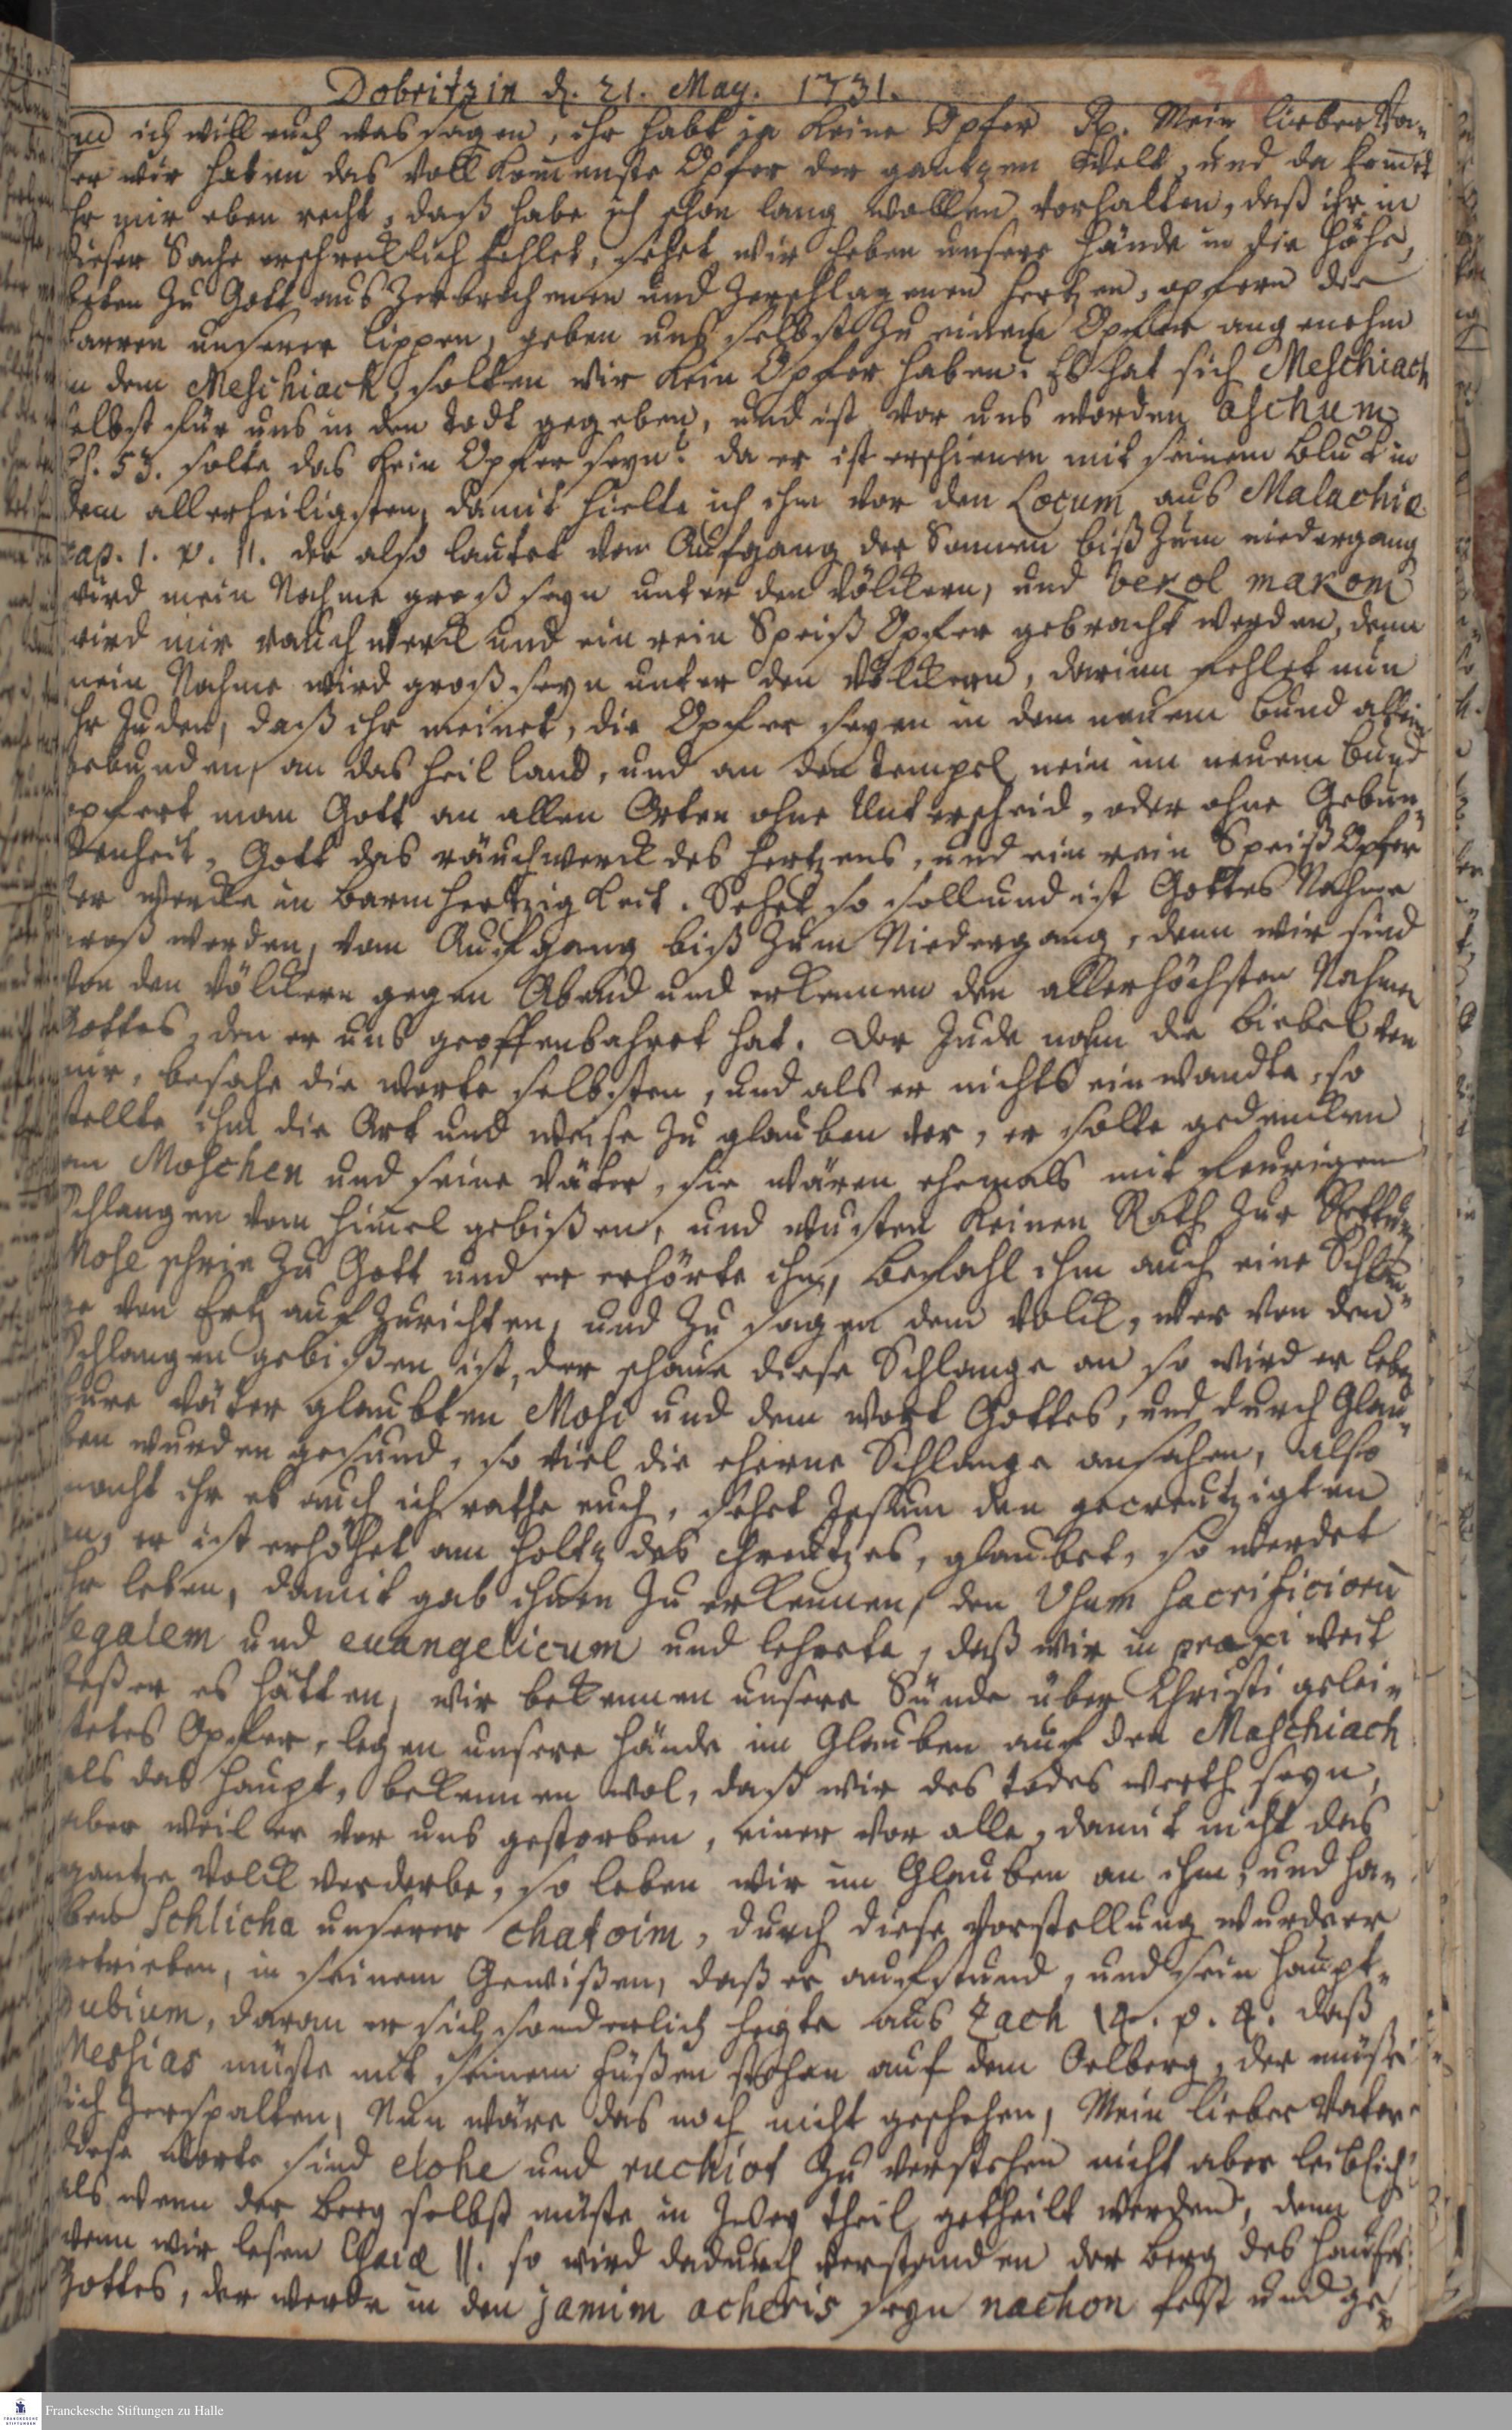 Dobritzin d. 21. May. 1731.
34
ud ich will euch was sagen, ihr habt ja keine Opfer Rp. Mein lieber Va-
er wir haben das vollkomenste Opfer der gantzen Welt, und da komet
hr mir eben recht, daß habe ich schon lang wollen vorhalten, daß ihr in
dieser Sache erschrecklich fehlet, sehet wir heben unsere Hände in die Höhe,
beten zu Gott aus zerbrochenen und zerschlagenen Hertzen, opfern die
farren unserer Lippen, geben uns selbst zu einem Opfer angenehm
n dem Meschiach, solten wir kein Opfer haben? Es hat sich Meschiach
selbst für uns in den Todt gegeben, und ist vor uns worden aschum
Es. 53. solte das kein Opfer seyn? da er ist erschienen mit seinem Blut in
dem allerheiligsten, damit hielte ich ihm vor den Locum aus Malachia
cap. 1. v. 11. der also lautet vom Aufgang der Sonnen biß zum niedergang
wird mein Nahme groß seyn unter den Völckern, und vekol makom
wird mir rauchwerck und ein rein Speiß Opfer gebracht werden, denn
mein Nahme wird groß seyn unter den Völckern, darinn fehlet nun
hr Juden, daß ihr meinet, die Opfer seyen in dem neuem Bund allein
gebunden, an das heil land, und an den tempel nein im neuem Bund
opfert man Gott an allen Orten ohne Unterscheid, oder ohne Gebun-
denheit, Gott das räuchwerck des Hertzens, und ein rein Speiß Opfer
der Wercke in Barmhertzigkeit. Sehet so soll und ist Gottes Nahme
groß werden, vom Aufgang biß zum Niedergang, denn wir sind
von den Völckern gegen Abend und erkennen den allerhöchsten Nahmen
Gottes, den er uns geoffenbahret hat. Der Jude nahm die Biebel von
mir, besahe die Worte selbsten, und als er nichts einwandte, so
stellte ihm die Art und Weise zu glauben vor, er solte gedencken
an Moschen und seine Väter, sie wären ehemals mit feurigen
Schlangen vom Himel gebißen, und wusten keinen Rath zur Rettu-
Mose schrie zu Gott und er erhörte ihn, befahl ihm auch eine Schlan-
ge von Ertz aufzurichten, und zu sagen dem Volck, wer von den
Schlangen gebißen ist, der schaue diese Schlange an so wird er leben
Eure Väter glaubten Mosi und dem Wort Gottes, und durch Glau-
ben wurden gesund, so viel die eherne Schlange ansahen, also
macht ihr es auch ich rathe euch, sehet Jesum den gecreutzigten
an, er ist erhöhet am Holtz des Chreutzes, glaubet, so werdet
hr leben, damit gab ihnen zu erkennen, den Usum sacrificioru
legalem und euangelicum und lehrete, daß wir in praxi weit
beßer es hätten, wir bekennen unsere Sünde über Christi gelei-
stetes Opfer, legen unsere Hände im Glauben auf den Maschiach
als das Haupt, bekennen wol, daß wir des todes werth seyn,
aber weil er vor uns gestorben, einer vor alle, damit nicht das
gantze Volck verderbe, so leben wir im Glauben an ihm, und ha-
ben Schlicha unserer chatoim, durch diese Vorstellung wurde er
getrieben, in seinem Gewißen, daß er aufstund, und sein Haupt-
dubium, daran er sich sonderlich hegte aus Zach 14. v. 4. daß
Messias müste mit seinem Füßen stehen auf dem Oelberg, der müste
sich zerspalten, Nun wäre das noch nicht geschehen, Mein lieber Vater
diese Worte sind elohe und ruchiot zu verstehen nicht aber leiblich
als wenn der Berg selbst müste in zwey theil getheilt werden, denn
wenn wir lesen Esaiæ 11. so wird dadurch verstanden der Berg des Hauses
Gottes, der werde in den jamim acheris seyn nachon fest und ge-
Franckesche Stiftungen zu Halle